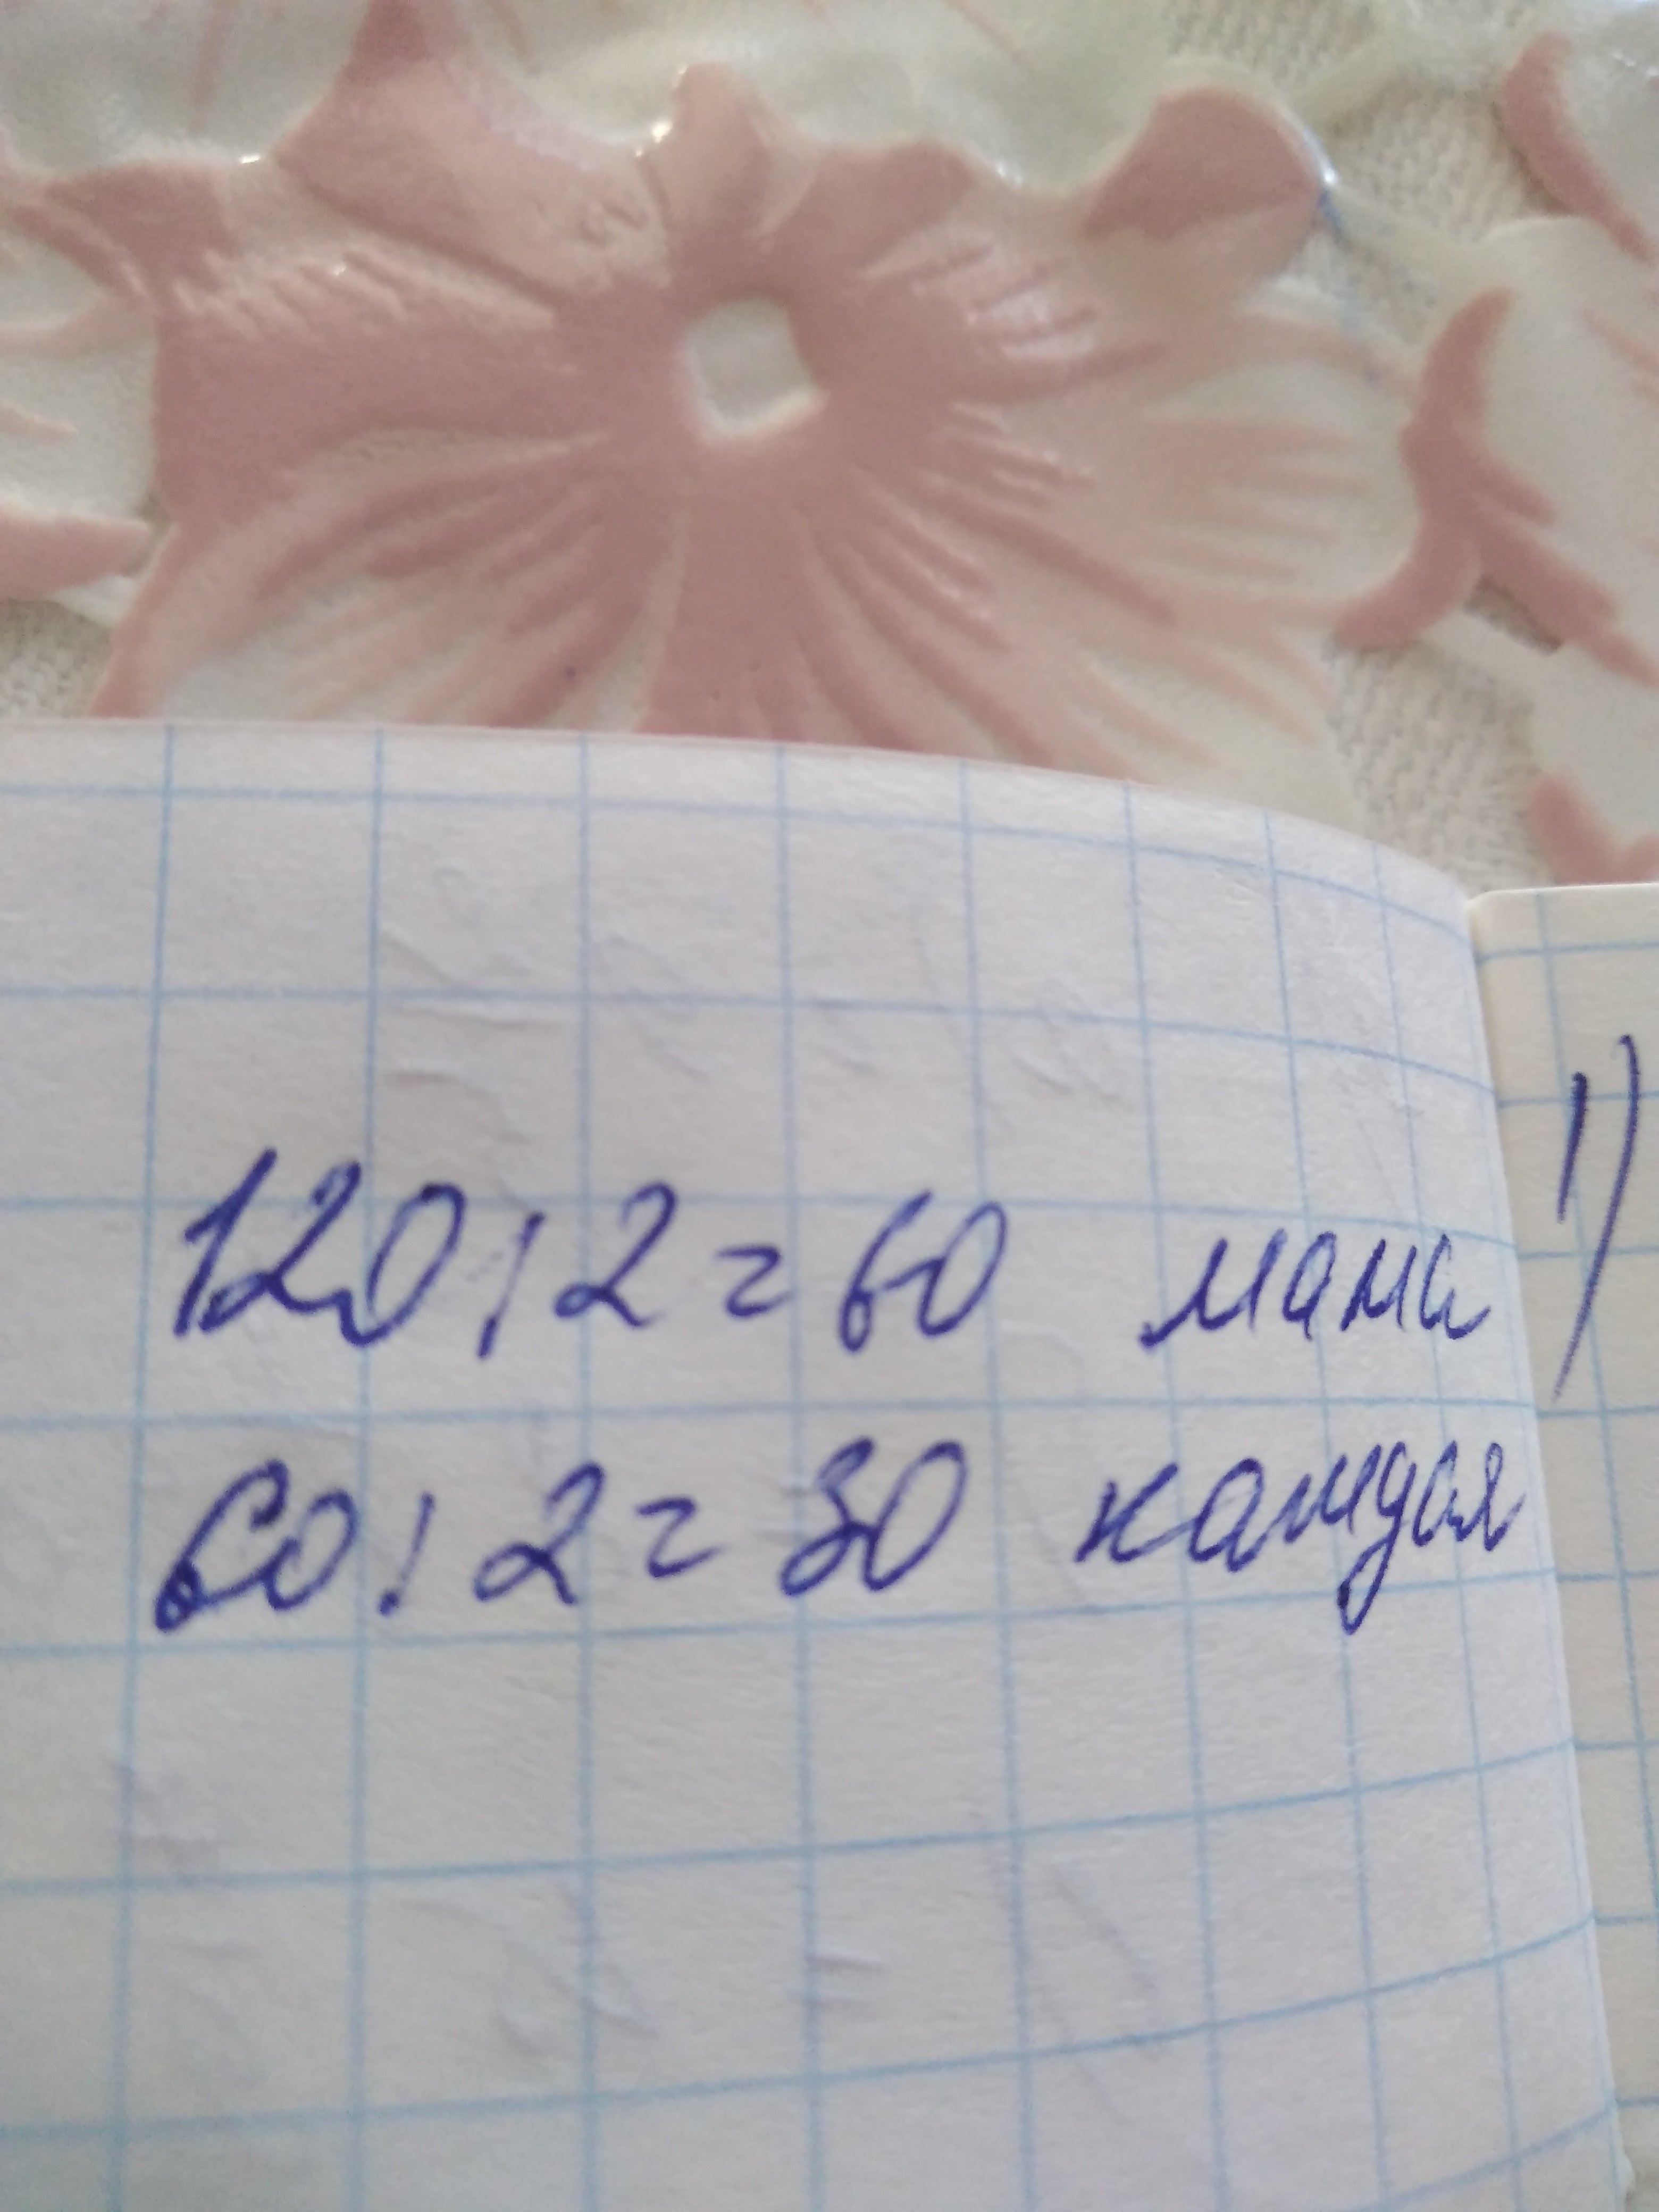 120:2=60 мама
60:2=30 каждая
1)